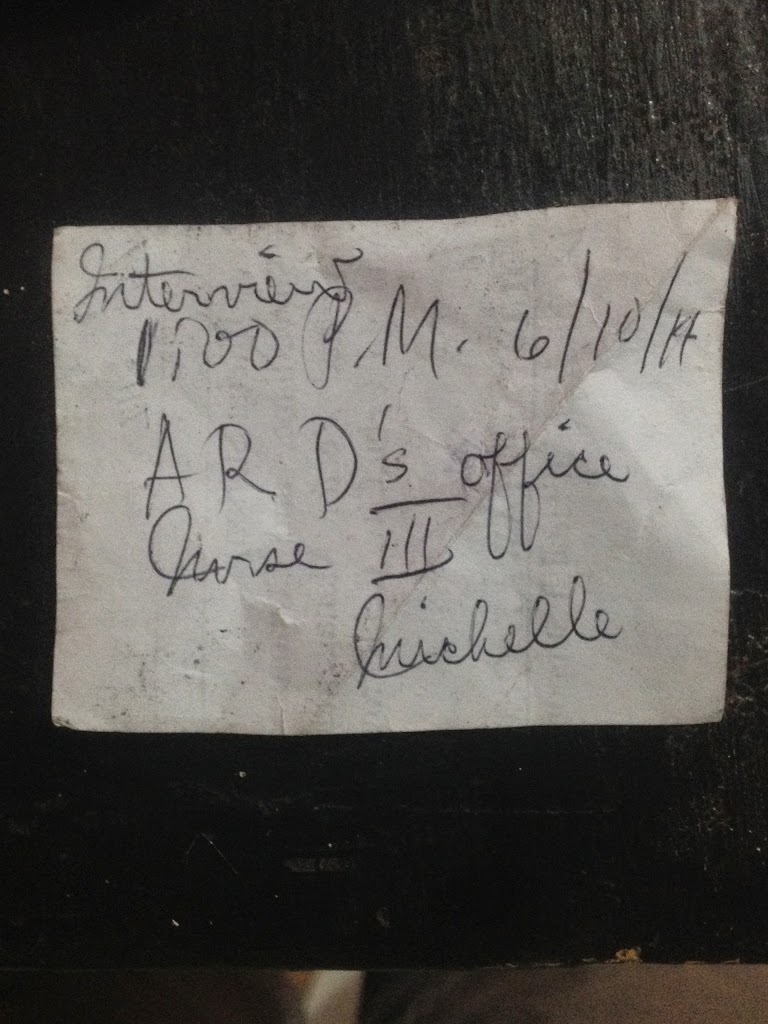 Interview
1:00 P.M. 6/10/14
A R D's office
Nurse III
Michelle